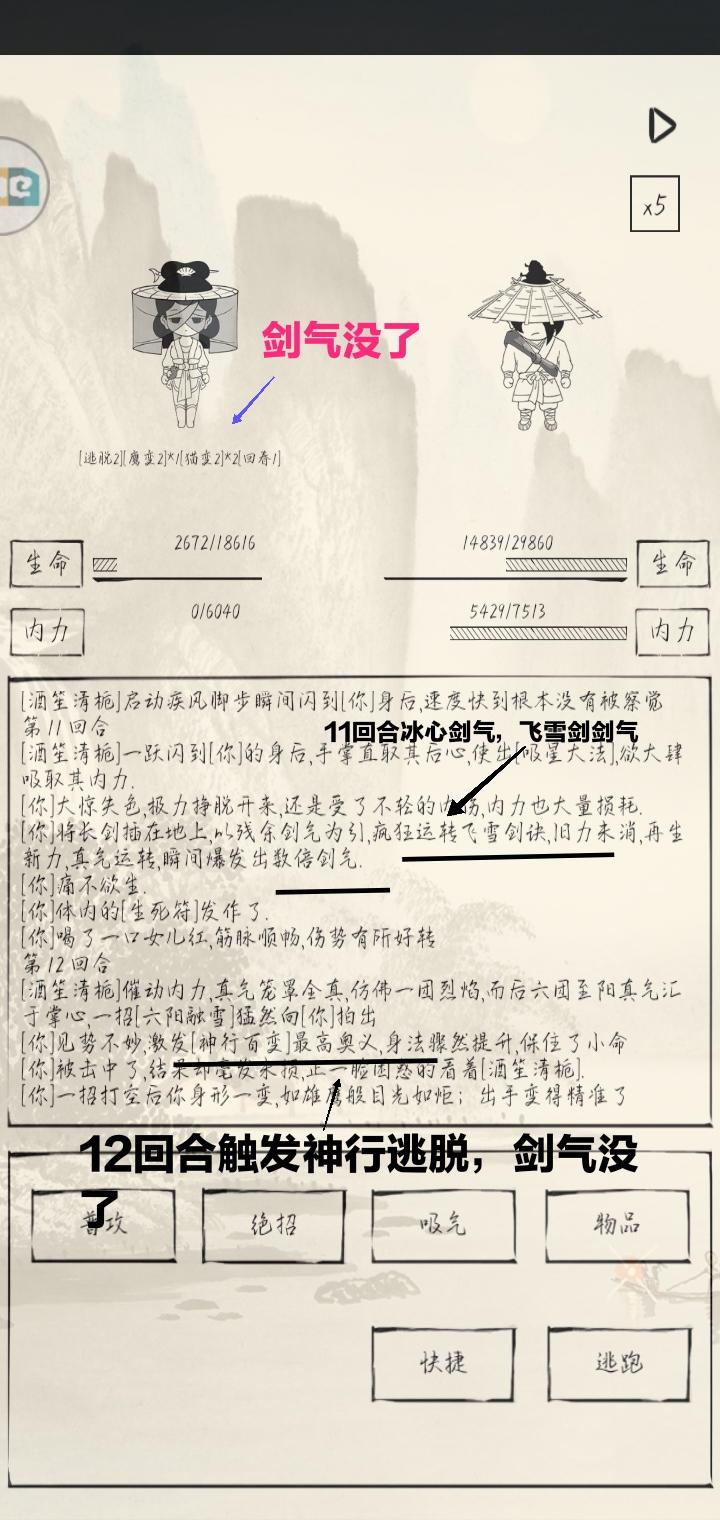 x5
剑气没了
[逃脱2][鹰变2]*1[猫变2]*2[回春1]
生命
2672/18616
14839/29860
生命
内力
0/6040
5429/7513
内力
[酒笙清栀]启动疾风脚步瞬间闪到[你]身后,速度快到根本没有被察觉
第11回合
11回合冰心剑气，飞雪剑剑气
[酒笙清栀]一跃闪到[你]的身后,手掌直取其后心,使出[吸星大法],欲大肆
吸取其内力.
[你]大惊失色,极力挣脱开来,还是受了不轻的内伤,内力也大量损耗.
[你]将长剑插在地上,以残余剑气为引,疯狂运转飞雪剑诀,旧力未消,再生
新力,真气运转,瞬间爆发出数倍剑气.
[你]痛不欲生.
[你]体内的[生死符]发作了.
[你]喝了一口女儿红,筋脉顺畅,伤势有所好转
第12回合
[酒笙清栀]催动内力,真气笼罩全真,仿佛一团烈焰,而后六团至阳真气汇
于掌心,一招[六阳融雪]猛然向[你]拍出
[你]见势不妙,激发[神行百变]最高奥义,身法骤然提升,保住了小命
[你]被击中了,结果却毫发未损,正一脸困惑的看着[酒笙清栀].
[你]一招打空后你身形一变,如雄鹰般目光如炬；出手变得精准了
12回合触发神行逃脱，剑气没
了
普攻
绝招
吸气
物品
快捷
逃跑